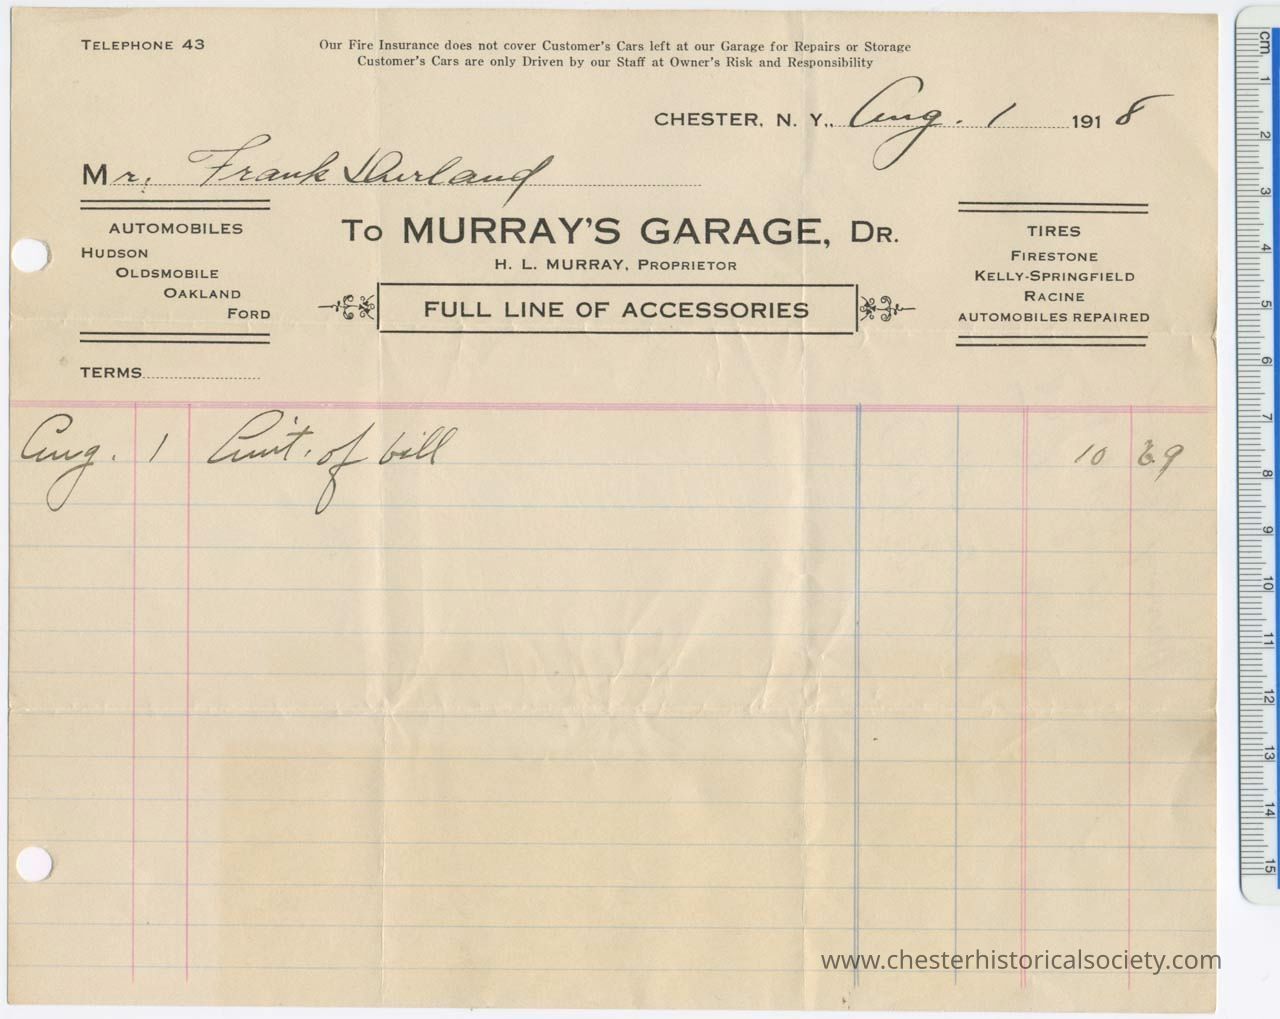 TELEPHONE 43
Our Fire Insurance does not cover Customer's Cars left at our Garage for Repairs or Storage
Customer's Cars are only Driven by our Staff at Owner's Risk and Responsibility
CHESTER, N. Y., Aug. 1 1918
Mr. Frank Durland
AUTOMOBILES
HUDSON
OLDSMOBILE
OAKLAND
FORD
To MURRAY'S GARAGE, DR.
H. L. MURRAY, PROPRIETOR
FULL LINE OF ACCESSORIES
TIRES
FIRESTONE
KELLY-SPRINGFIELD
RACINE
AUTOMOBILES REPAIRED
TERMS
Aug. 1 Amt. of bill 10 69
www.chesterhistoricalsociety.com
cm 1 2 3 4 5 6 7 8 9 10 11 12 13 14 15